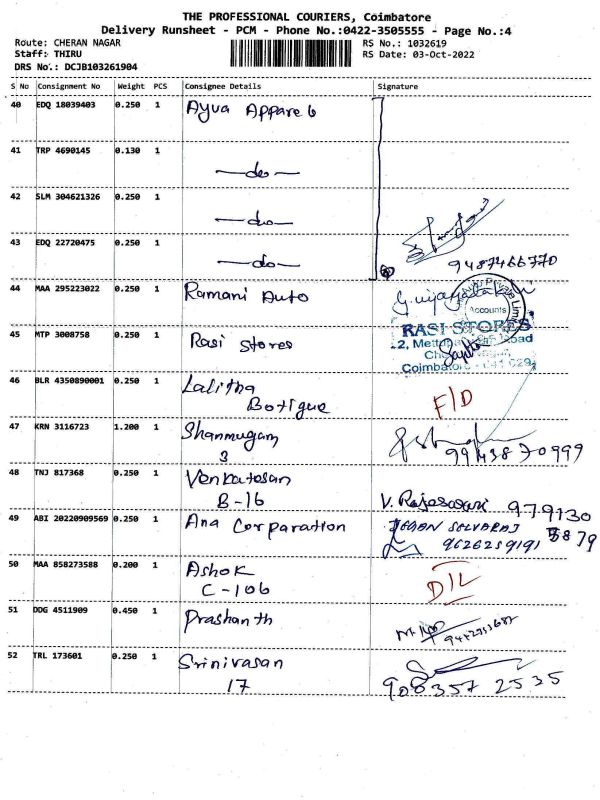 THE PROFESSIONAL COURIERS, Coimbatore
Delivery Runsheet - PCM - Phone No.:0422-3505555 - Page No.:4
Route: CHERAN NAGAR
Staff: THIRU
DRS No.: DCJB103261904
RS No.: 1032619
RS Date: 03-Oct-2022
S No Consignment No Weight PCS Consignee Details Signature
40 EDQ 18039403 0.250 1 Ayua Apparel
41 TRP 4690145 0.130 1 —do—
42 SLM 304621326 0.250 1 —do—
43 EDQ 22720475 0.250 1 —do— 9487466770
44 MAA 295223022 0.250 1 Ramani Auto
Accounts
45 MTP 3008758 0.250 1 Rasi Stores
RASI STORES
Coimbatore
46 BLR 4350890001 0.250 1 Lalitha
Botique F/D
47 KRN 3116723 1.200 1 Shanmugam
3 9943870999
48 TNJ 817368 0.250 1 Venkatesan
B-16 V. Rajeswari 979130
5879
49 ABI 20220909569 0.250 1 Ana Corparation JEGAN SELVARAJ
9626259191
50 MAA 858273588 0.200 1 Ashok
C-106 D/L
51 DDG 4511909 0.450 1 Prashanth
52 TRL 173601 0.250 1 Srinivasan
17 908357 2535